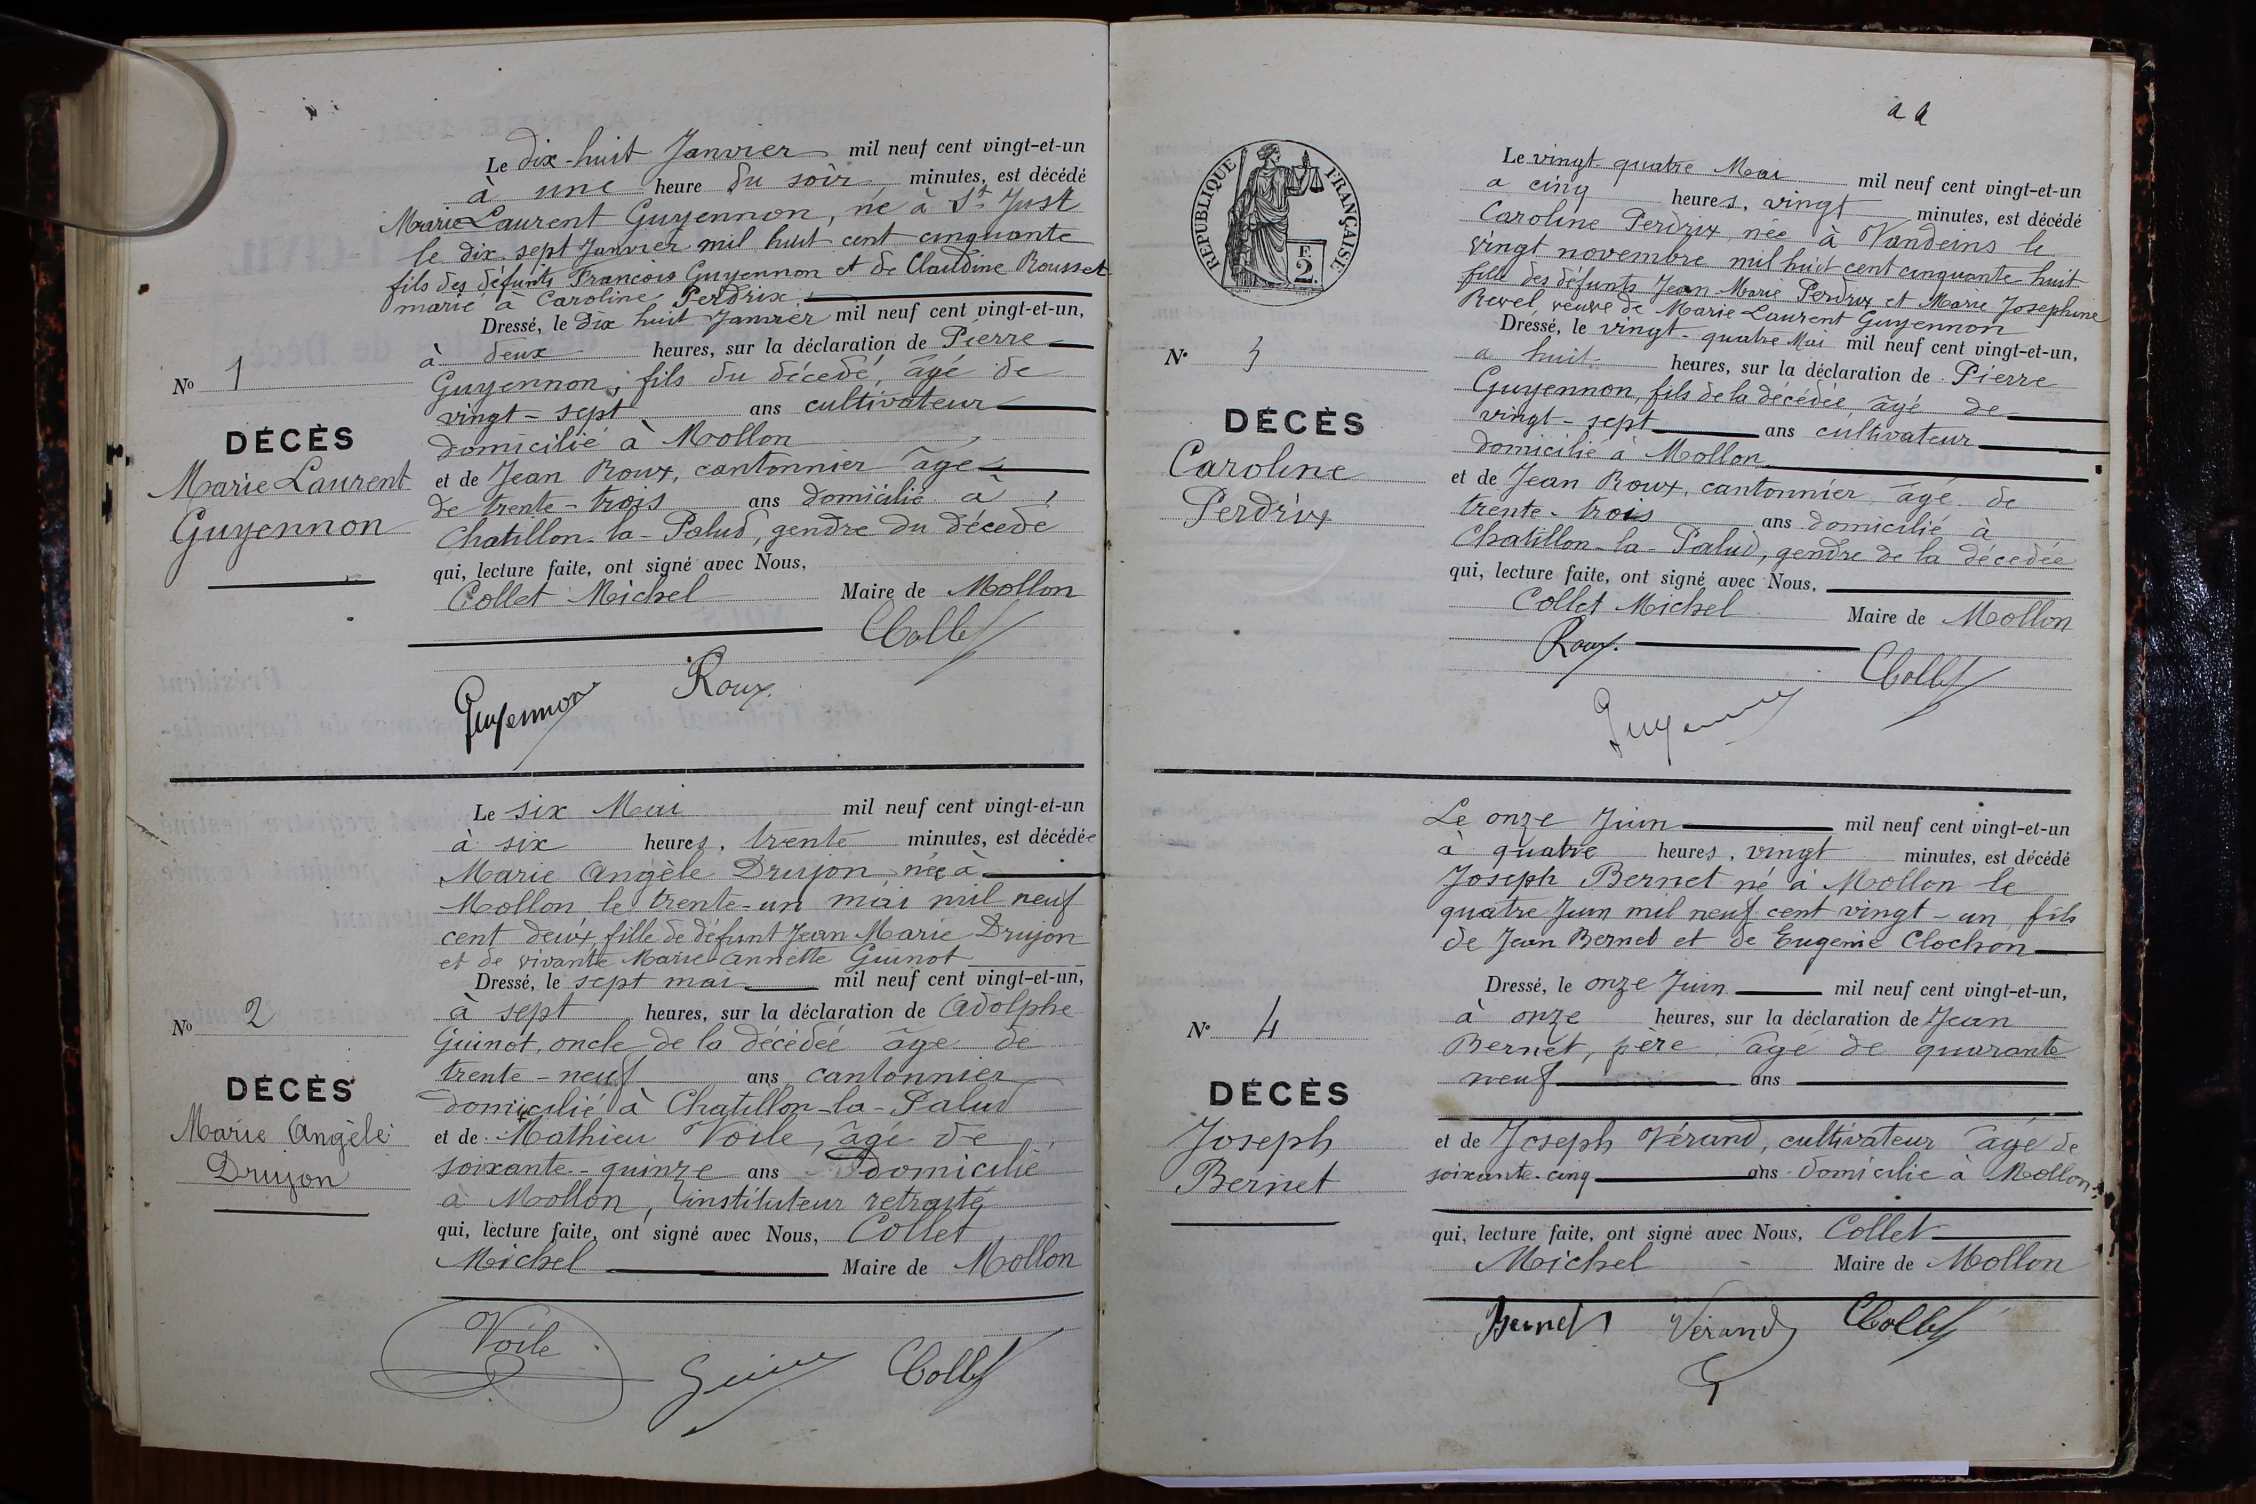 Le dix-huit Janvier mil neuf cent vingt-et-un
à une heure du soir minutes, est décédé
Marie Laurent Guyennon, né à St Just
le dix sept Janvier mil huit cent cinquante
fils des défunts François Guyennon et de Claudine Rousset
marié à Caroline Perdrix
Dressé, le Dix huit Janvier mil neuf cent vingt-et-un,
à deux heures, sur la déclaration de Pierre
Guyennon, fils du décédé, âgé de
vingt-sept ans cultivateur
domicilié à Mollon
et de Jean Roux, cantonnier âgé
de trente-trois ans domicilié à
Chatillon-la-Palud, gendre du décédé
qui, lecture faite, ont signé avec Nous,
Collet Michel Maire de Mollon
Collet
Guyennon Roux
No 1
DÉCÈS
Marie Laurent
Guyennon
Le six Mai mil neuf cent vingt-et-un
à six heures, trente minutes, est décédée
Marie Angèle Drujon, née à
Mollon le trente-un mai mil neuf
cent deux, fille de défunt Jean Marie Drujon
et de vivante Marie Annette Guinot
Dressé, le sept mai mil neuf cent vingt-et-un,
à sept heures, sur la déclaration de Adolphe
Guinot, oncle de la décédée âgé de
trente-neuf ans cantonnier
domicilié à Chatillon-la-Palud
et de Mathieu Voile, âgé de
soixante-quinze ans domicilié
à Mollon, instituteur retraité
qui, lecture faite, ont signé avec Nous, Collet
Michel Maire de Mollon
Voile Collet
No 2
DÉCÈS
Marie Angèle
Drujon
RÉPUBLIQUE FRANÇAISE
F.
2.
Le vingt-quatre Mai mil neuf cent vingt-et-un
a cinq heures, vingt minutes, est décédé
Caroline Perdrix, née à Vandeins le
vingt novembre mil huit cent cinquante huit
fille des défunts Jean Marie Perdrix et Marie Josephine
Revel, veuve de Marie Laurent Guyennon
Dressé, le vingt-quatre Mai mil neuf cent vingt-et-un,
a huit heures, sur la déclaration de Pierre
Guyennon, fils de la décédée, âgé de
vingt-sept ans cultivateur
domicilié à Mollon
et de Jean Roux, cantonnier âgé de
trente-trois ans domicilié à
Chatillon-la-Palud, gendre de la décédée
qui, lecture faite, ont signé avec Nous,
Collet Michel Maire de Mollon
Roux.
Collet
Guyennon
No 3
DÉCÈS
Caroline
Perdrix
Le onze Juin mil neuf cent vingt-et-un
à quatre heures, vingt minutes, est décédé
Joseph Bernet né à Mollon le
quatre Juin mil neuf cent vingt-un, fils
de Jean Bernet et de Eugénie Clochon
Dressé, le onze Juin mil neuf cent vingt-et-un,
à onze heures, sur la déclaration de Jean
Bernet, père, âgé de quarante
neuf ans
et de Joseph Vérand, cultivateur âgé de
soixante-cinq ans domicilié à Mollon
qui, lecture faite, ont signé avec Nous, Collet
Michel Maire de Mollon
Bernet Vérand Collet
No 4
DÉCÈS
Joseph
Bernet